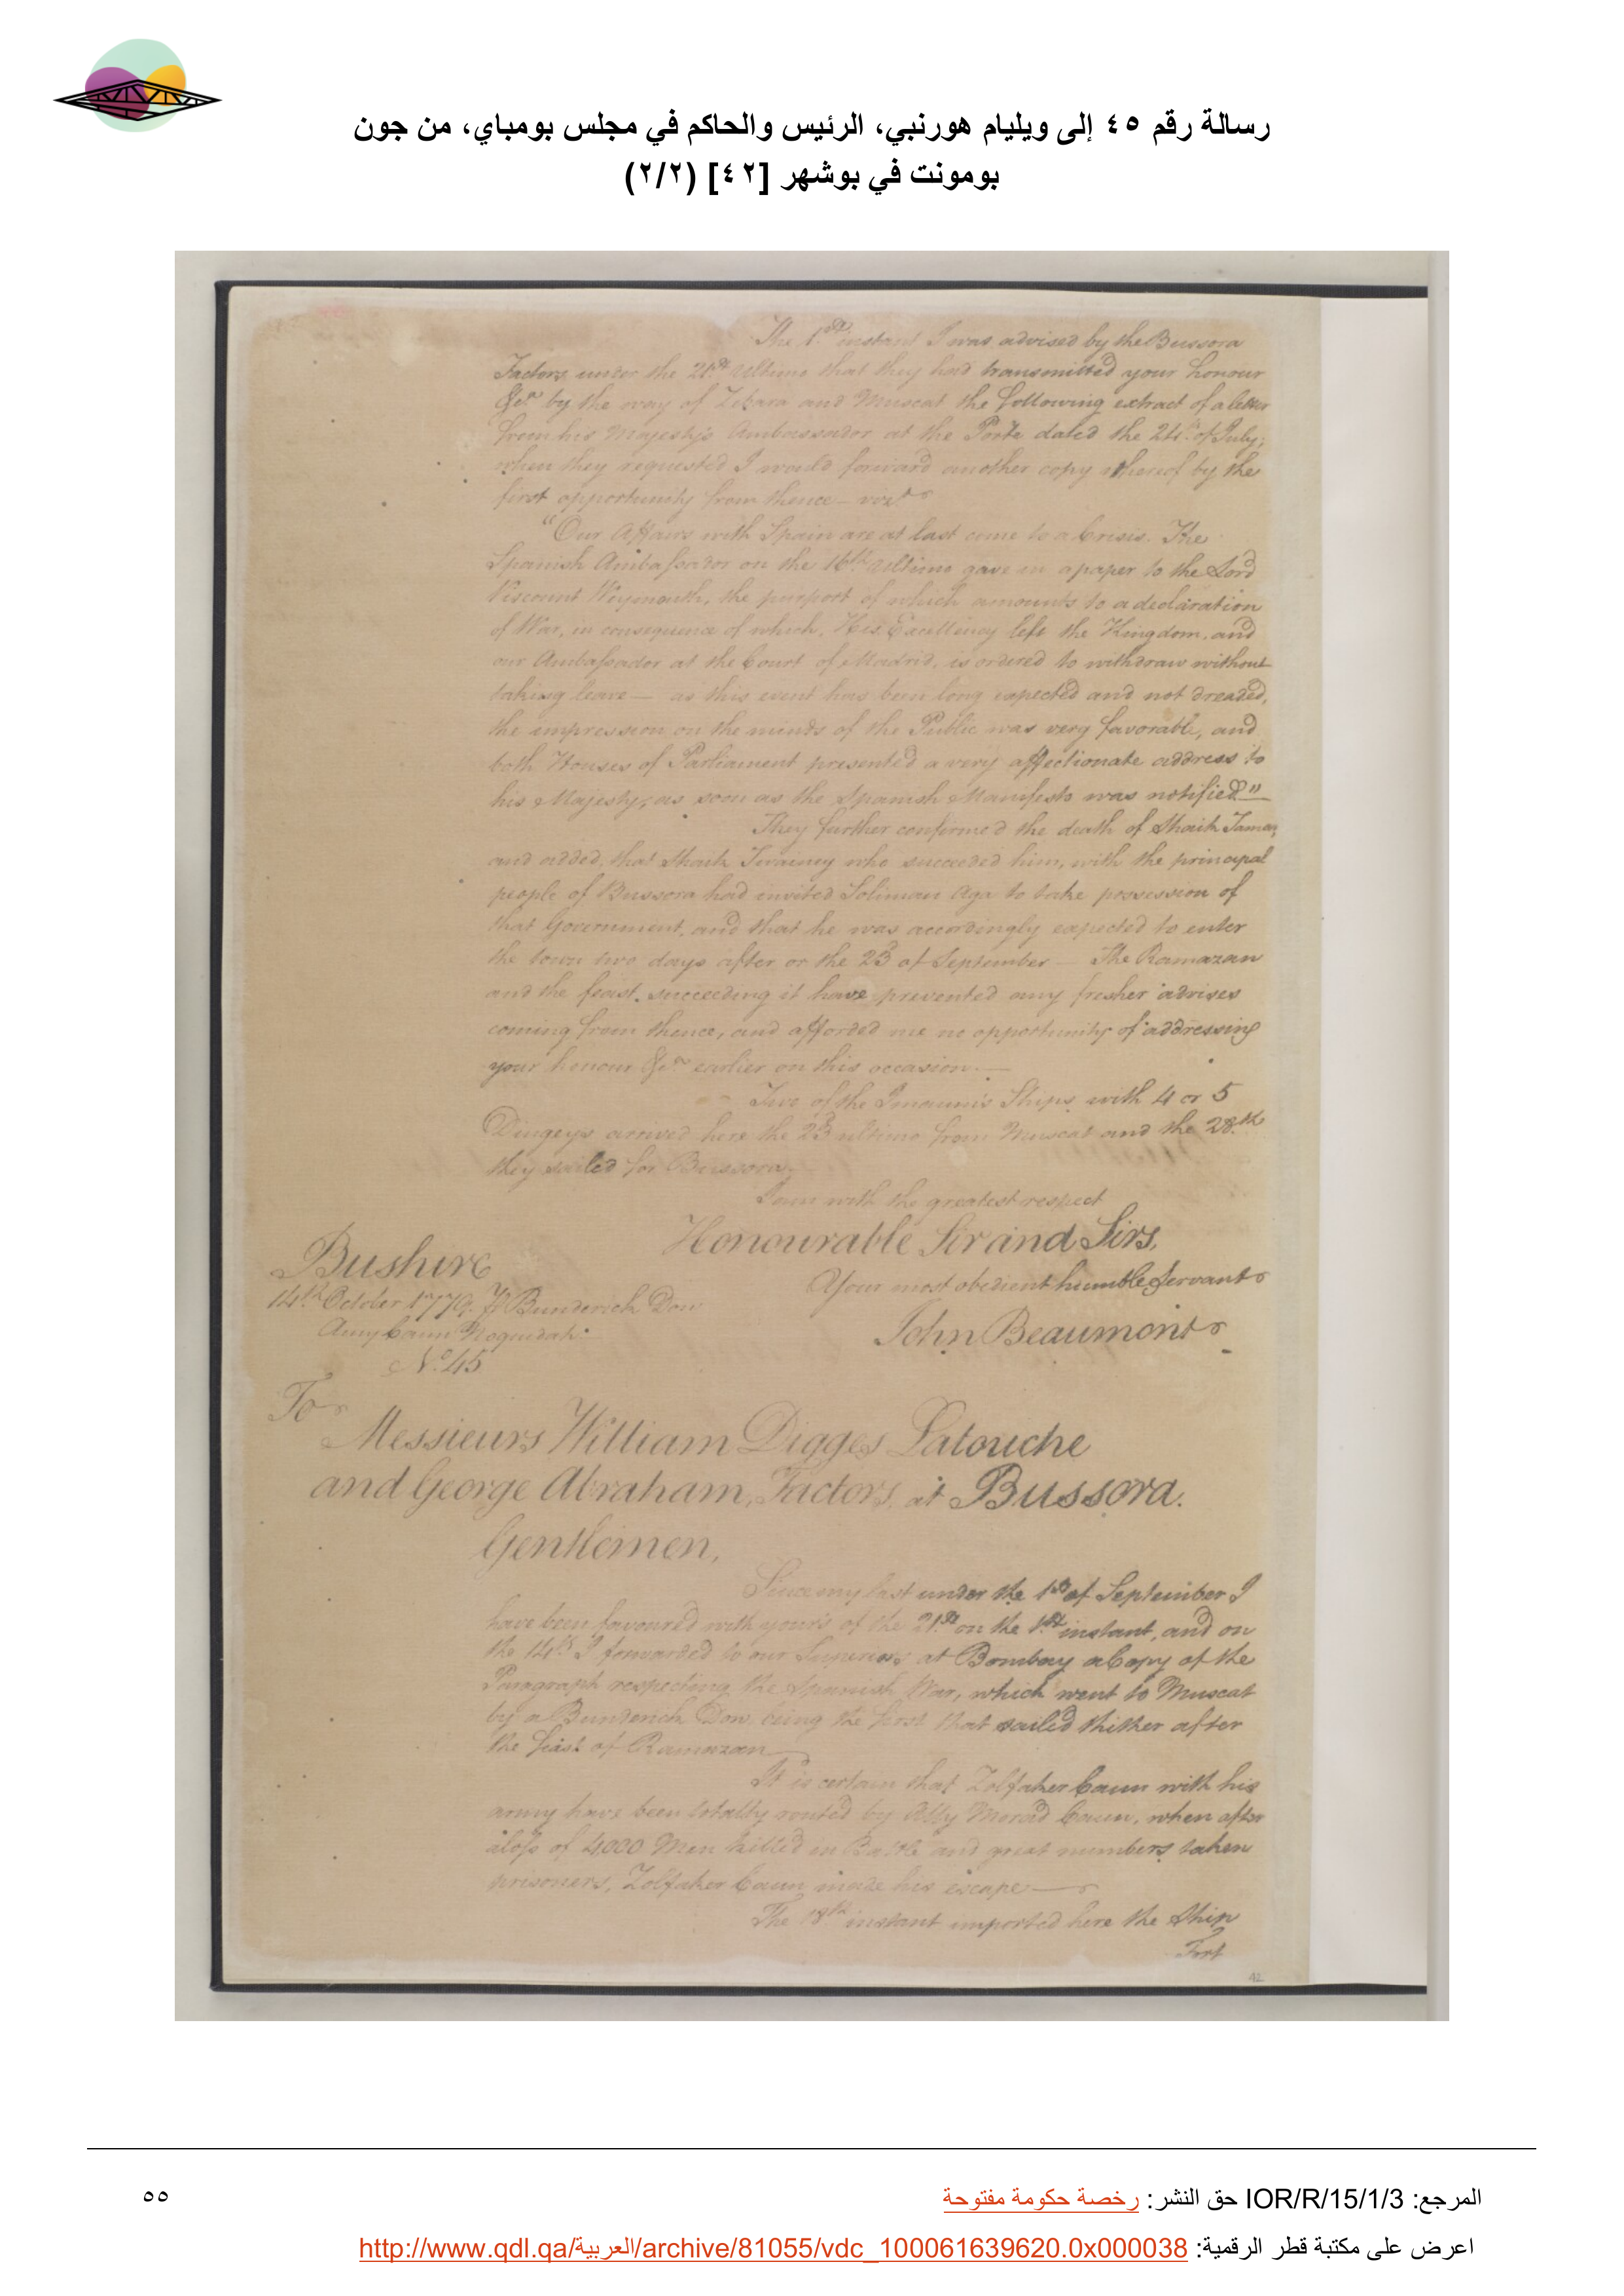 رسالة رقم ٤٥ إلى ويليام هورنبي، الرئيس والحاكم في مجلس بومباي، من جون
بومونت في بوشهر [٤٢] (٢/٢)
The 1st instant I was advised by the Bussora
Factors under the 21st ultimo that they had transmitted your honour
&ca by the way of Zebara and Muscat the following extract of a letter
from his Majesty's Ambassador at the Porte dated the 24th of July;
when they requested I would forward another copy thereof by the
first opportunity from thence – vizt
"Our Affairs with Spain are at last come to a Crisis. The
Spanish Ambassador on the 16th ultimo gave in a paper to the Lord
Viscount Weymouth, the purport of which amounts to a declaration
of War, in consequence of which, His Excellency left the Kingdom, and
our Ambassador at the Court of Madrid, is ordered to withdraw without
taking leave — as this event has been long expected and not dreaded,
the impression on the minds of the Public was very favorable, and
both Houses of Parliament presented a very affectionate address to
his Majesty, as soon as the Spanish Manifesto was notified"
They further confirmed the death of Shaik Tamar,
and added, that Shaik Twainey who succeeded him, with the principal
people of Bussora had invited Soliman Aga to take possession of
that Government, and that he was accordingly expected to enter
the town two days after or the 23d of September — The Ramazan
and the feast succeeding it have prevented any fresher advises
coming from thence, and afforded me no opportunity of addressing
your honour &ca earlier on this occasion. —
Two of the Imaum's Ships with 4 or 5
Dingeys arrived here the 23d ultimo from Muscat and the 28th
they sailed for Bussora.
I am with the greatest respect
Honourable Sir and Sirs,
Your most obedient humble Servant
John Beaumont
Bushire
14th October 1779. Pr Bunderick Dow
Noquedah
No. 45
To
Messieurs William Digges Latouche
and George Abraham, Factors at Bussora.
Gentlemen,
Since my last under the 1st of September I
have been favoured with yours of the 21st on the 1st instant, and on
the 14th I forwarded to our Superiors at Bombay a Copy of the
Paragraph respecting the Spanish War, which went to Muscat
by a Bunderick Dow, being the first that sailed thither after
the feast of Ramazan
It is certain that Zolfaker Caun with his
army have been totally routed by Ally Morad Caun, when after
a loss of 4,000 Men killed in Battle and great numbers taken
prisoners, Zolfaker Caun made his escape —
The 18th instant imported here the Ship
Fort
42
المرجع: IOR/R/15/1/3 حق النشر: رخصة حكومة مفتوحة
٥٥
اعرض على مكتبة قطر الرقمية: http://www.qdl.qa/العربية/archive/81055/vdc_100061639620.0x000038